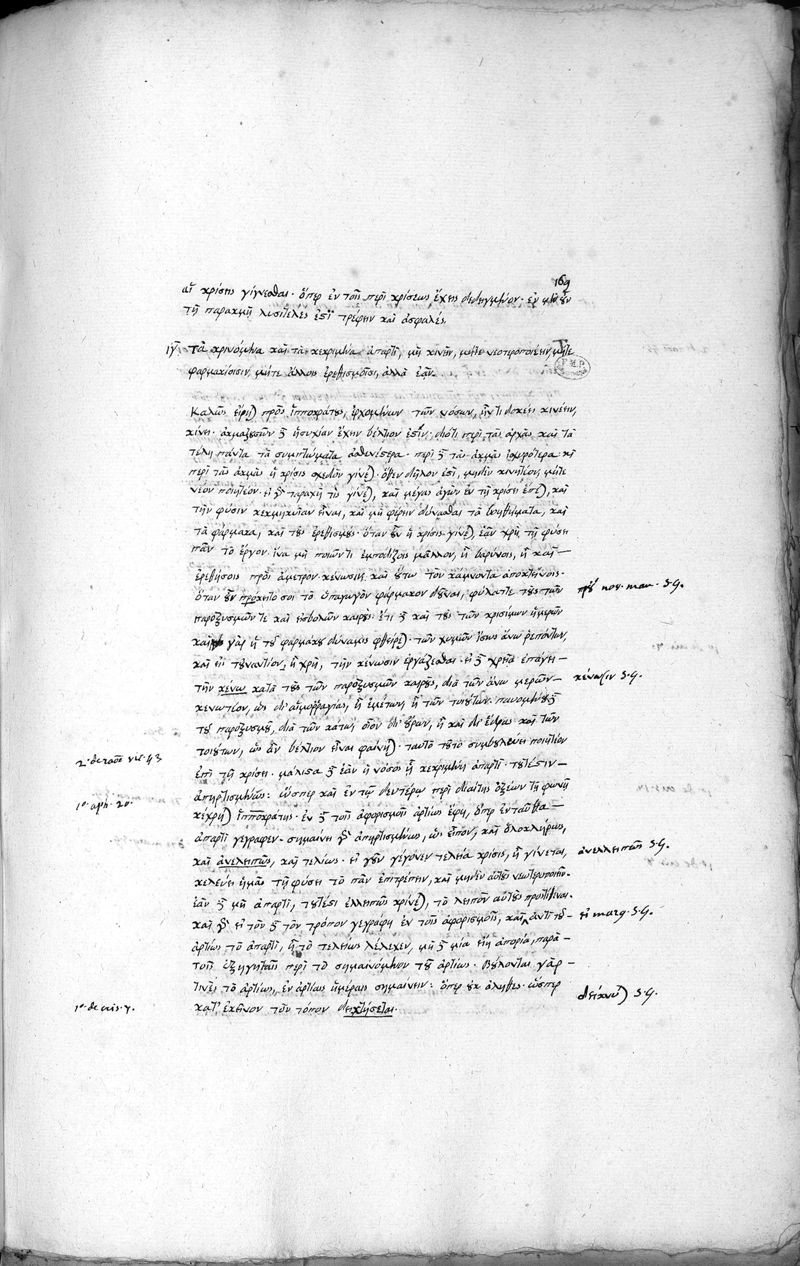 169
αἱ κρίσεις γίγνεσθαι· ὅπερ ἐν τοῖς περὶ κρίσεως ἔχεις δεδειγμένον· ἐν μὲν οὖν
τῇ παρακμῇ λυσιτελές ἐστὶ τρέφειν καὶ ἀσφαλές.
ιγ Τὰ κρινόμενα καὶ τὰ κεκριμένα ἀπαρτὶ, μὴ κινεῖν, μήτε νεοτεροποιέειν, μήτε
φαρμακίοισιν, μήτε ἄλλοις ἐρεθισμοῖσι, ἀλλὰ ἐᾶν.
Καλῶς εἴρηται πρὸς ἱπποκράτους, ἀρχομένων τῶν νόσων, ἤν τι δοκέει κινέειν,
κίνει· ἀκμαζουσῶν δὲ ἡσυχίαν ἔχειν βέλτιον ἐστίν· διότι περὶ τὰς ἀρχὰς καὶ τὰ
τέλη πάντα τὰ συμπτώματα ἀσθενέστερα· περὶ δὲ τὰς ἀκμὰς ἰσχυρότερα καὶ
περὶ τὰς ἀκμὰς ἡ κρίσις σχεδὸν γίνεται· ὅθεν δῆλον ἐστὶ, μηδὲν κινητέον, μήτε
νέον ποιητέον· εἰ γὰρ ταραχή τις γίνεται, καὶ μέγας ἀγὼν ἐν τῇ κρίσει ἕπεται, καὶ
τὴν φύσιν κεκμηκυῖαν εἶναι, καὶ μὴ φέρειν δύνασθαι τὰ βοηθήματα, καὶ
τὰ φάρμακα, καὶ τοὺς ἐρεθισμοὺς· ὅταν οὖν ἡ κρίσις γίνεται, ἐᾶν χρὴ τῇ φύσει
πᾶν τὸ ἔργον· ἵνα μὴ ποιῶν τι ἐμποδίζοις μᾶλλον, ἢ βαρύνοις, ἢ καὶ
ἐρεθίσοις πρὸς ἄμετρον κένωσιν, καὶ οὕτω τὸν κάμνοντα ἀποκτείνοις·
ὅταν οὖν προκέηται σοι τὸ ὑπαγωγὸν φάρμακον δοῦναι, φύλαττε τοὺς τῶν
παροξυσμῶν τε καὶ εἰσβολῶν καιροὺς· ἔτι δὲ καὶ τοὺς τῶν κρισίμων ἡμερῶν
καὶ γὰρ ἡ τοῦ φαρμάκου δύναμις φθείρεται· τῶν χυμῶν ἴσως ἄνω ῥεπόντων,
καὶ εἰς τοὐναντίον, ἢ χρὴ, τὴν κένωσιν ἐργάζεσθαι· εἰ δὲ χρεία ἐπάγει
τὴν κένω κατὰ τοὺς τῶν παροξυσμῶν καιροὺς, διὰ τῶν ἄνω μερῶν
κενωτέον, ὡς δι᾽ αἱμορραγίας, ἢ ἐμέτων, ἢ τῶν τοιούτων· παυομένου δὲ
τοῦ παροξυσμοῦ, διὰ τῶν κάτω, οἷον δι᾽ οὔρων, ἢ καὶ δι᾽ ἕδρας καὶ τῶν
τοιούτων, ὡς ἂν βέλτιον εἶναι φαίνηται· ταυτὸ τοῦτο συμβουλεύει ποιητέον
ἐπὶ τῇ κρίσει· μάλιστα δὲ ἐὰν ἡ νόσος ᾖ κεκριμένη ἀπαρτὶ· τουτέστιν
ἀπηρτισμένως· ὥσπερ καὶ ἐν τῷ δευτέρῳ περὶ διαίτης ὀξέων τῇ φωνῇ
κέχρηται ἱπποκράτης· ἐν δὲ τοῖς ἀφορισμοῖς ἀρτίως ἔφη, ὅπερ ἐνταῦθα
ἀπαρτὶ γέγραφεν· σημαίνει γὰρ ἀπηρτισμένως, ὡς εἶπον, καὶ ὁλοκλήρως,
καὶ ἀνελειπῶς, καὶ τελίως· εἰ γοῦν γέγονεν τελεία κρίσις, ἢ γίνεται,
κελεύει ἡμᾶς τῇ φύσει τὸ πᾶν ἐπιτρέπειν, καὶ μηδὲν αὐτοὺς νεωτεροποιεῖν·
ἐὰν δὲ μὴ ἀπαρτὶ, τουτέστι ἐλλειπῶς κρίνεται, τὸ λειπὸν αὐτοὺς προστιθέναι·
καὶ γὰρ εἰ τὸν δὲ τὸν τρόπον γεγράφη ἐν τοῖς ἀφορισμοῖς, καὶ ἀντὶ τοῦ
ἀρτίως τὸ ἀπαρτὶ, ἢ τὸ τελείως λέλεχεν, μὴ δὲ μία εἴη ἀπορία, παρὰ
τοῖς ἐξηγηταῖς περὶ τὸ σημαινόμενον τοῦ ἀρτίως· βούλονται γάρ
τινες τὸ ἀρτίως, ἐν ἀρτίαις ἡμέραις σημαίνειν· ὅπερ οὐκ ἀληθὲς· ὥσπερ
κατ᾽ ἐκεῖνον τὸν τόπον δειχθήσεται.
κένωσιν S.G.
2º de 43
1º aph. 20.
ἀνελλειπῶς S.G.
εἰ marg. S.G.
δείκνυται S.G.
1º de cris. 7.